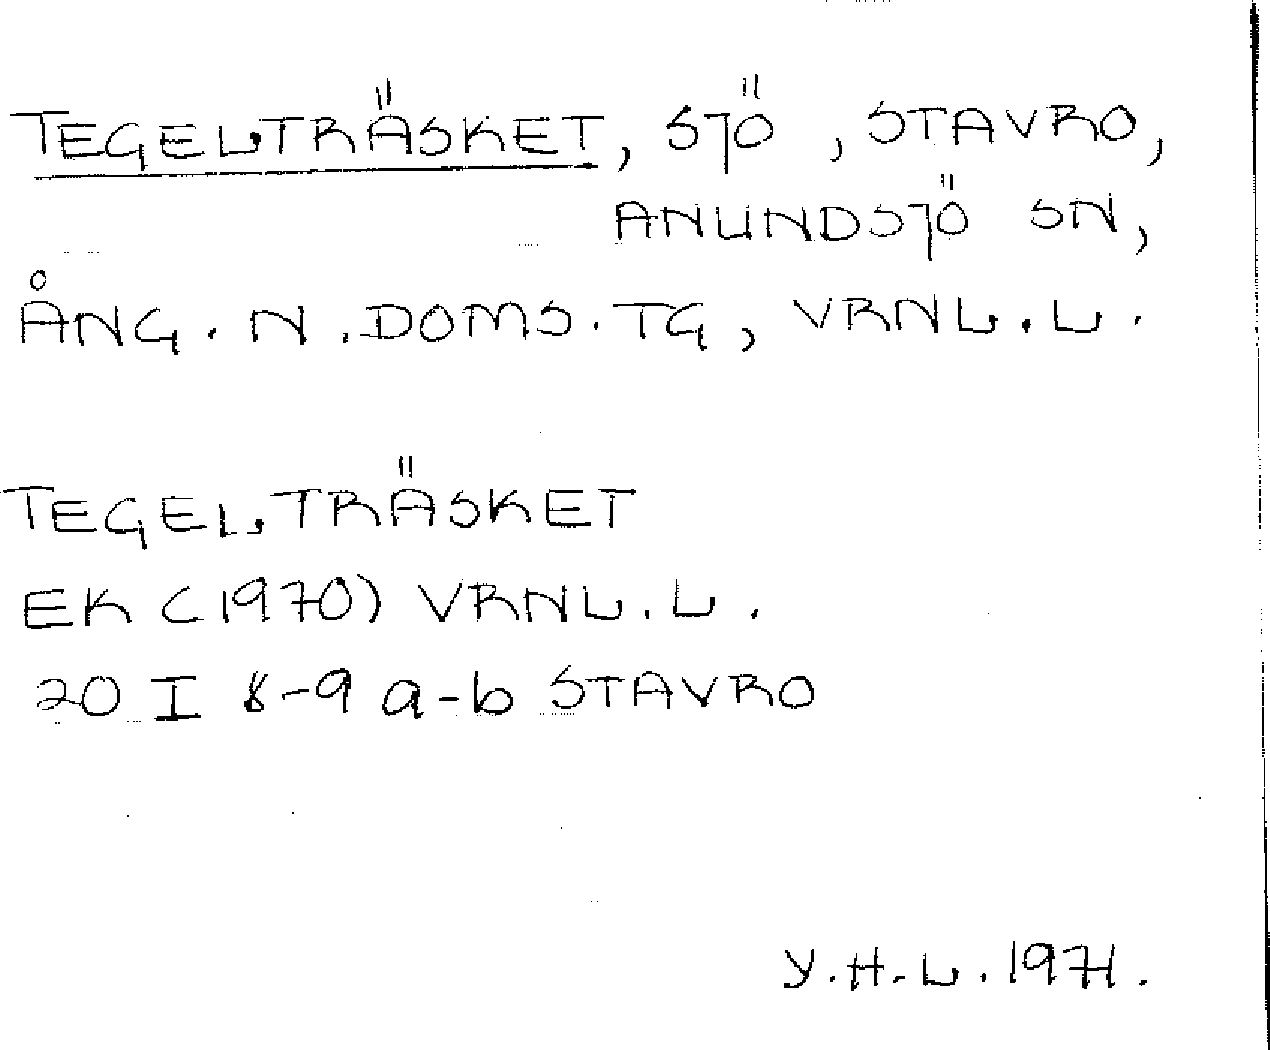 TEGELTRÄSKET, SJÖ, STAVRO,
ANUNDSJÖ SN,
ÅNG. N. DOMS. TG, VRNL. L.
TEGELTRÄSKET
EK (1970) VRNL. L.
20 I 8-9 a-b STAVRO
Y.H.L. 1971.